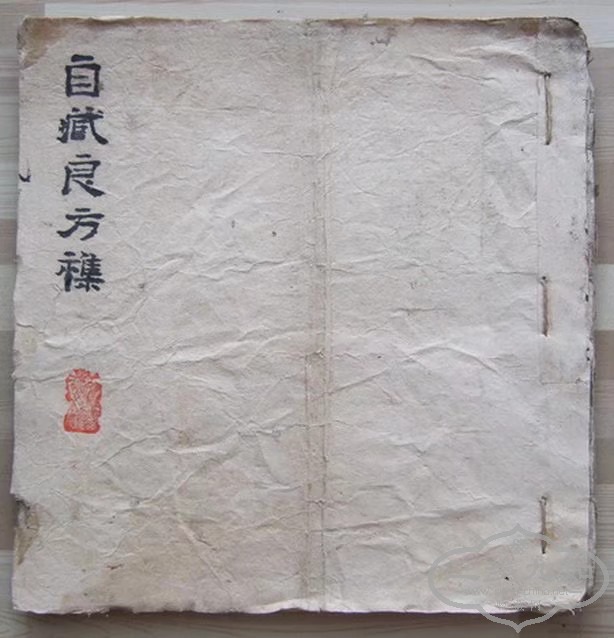 自藏良方襍